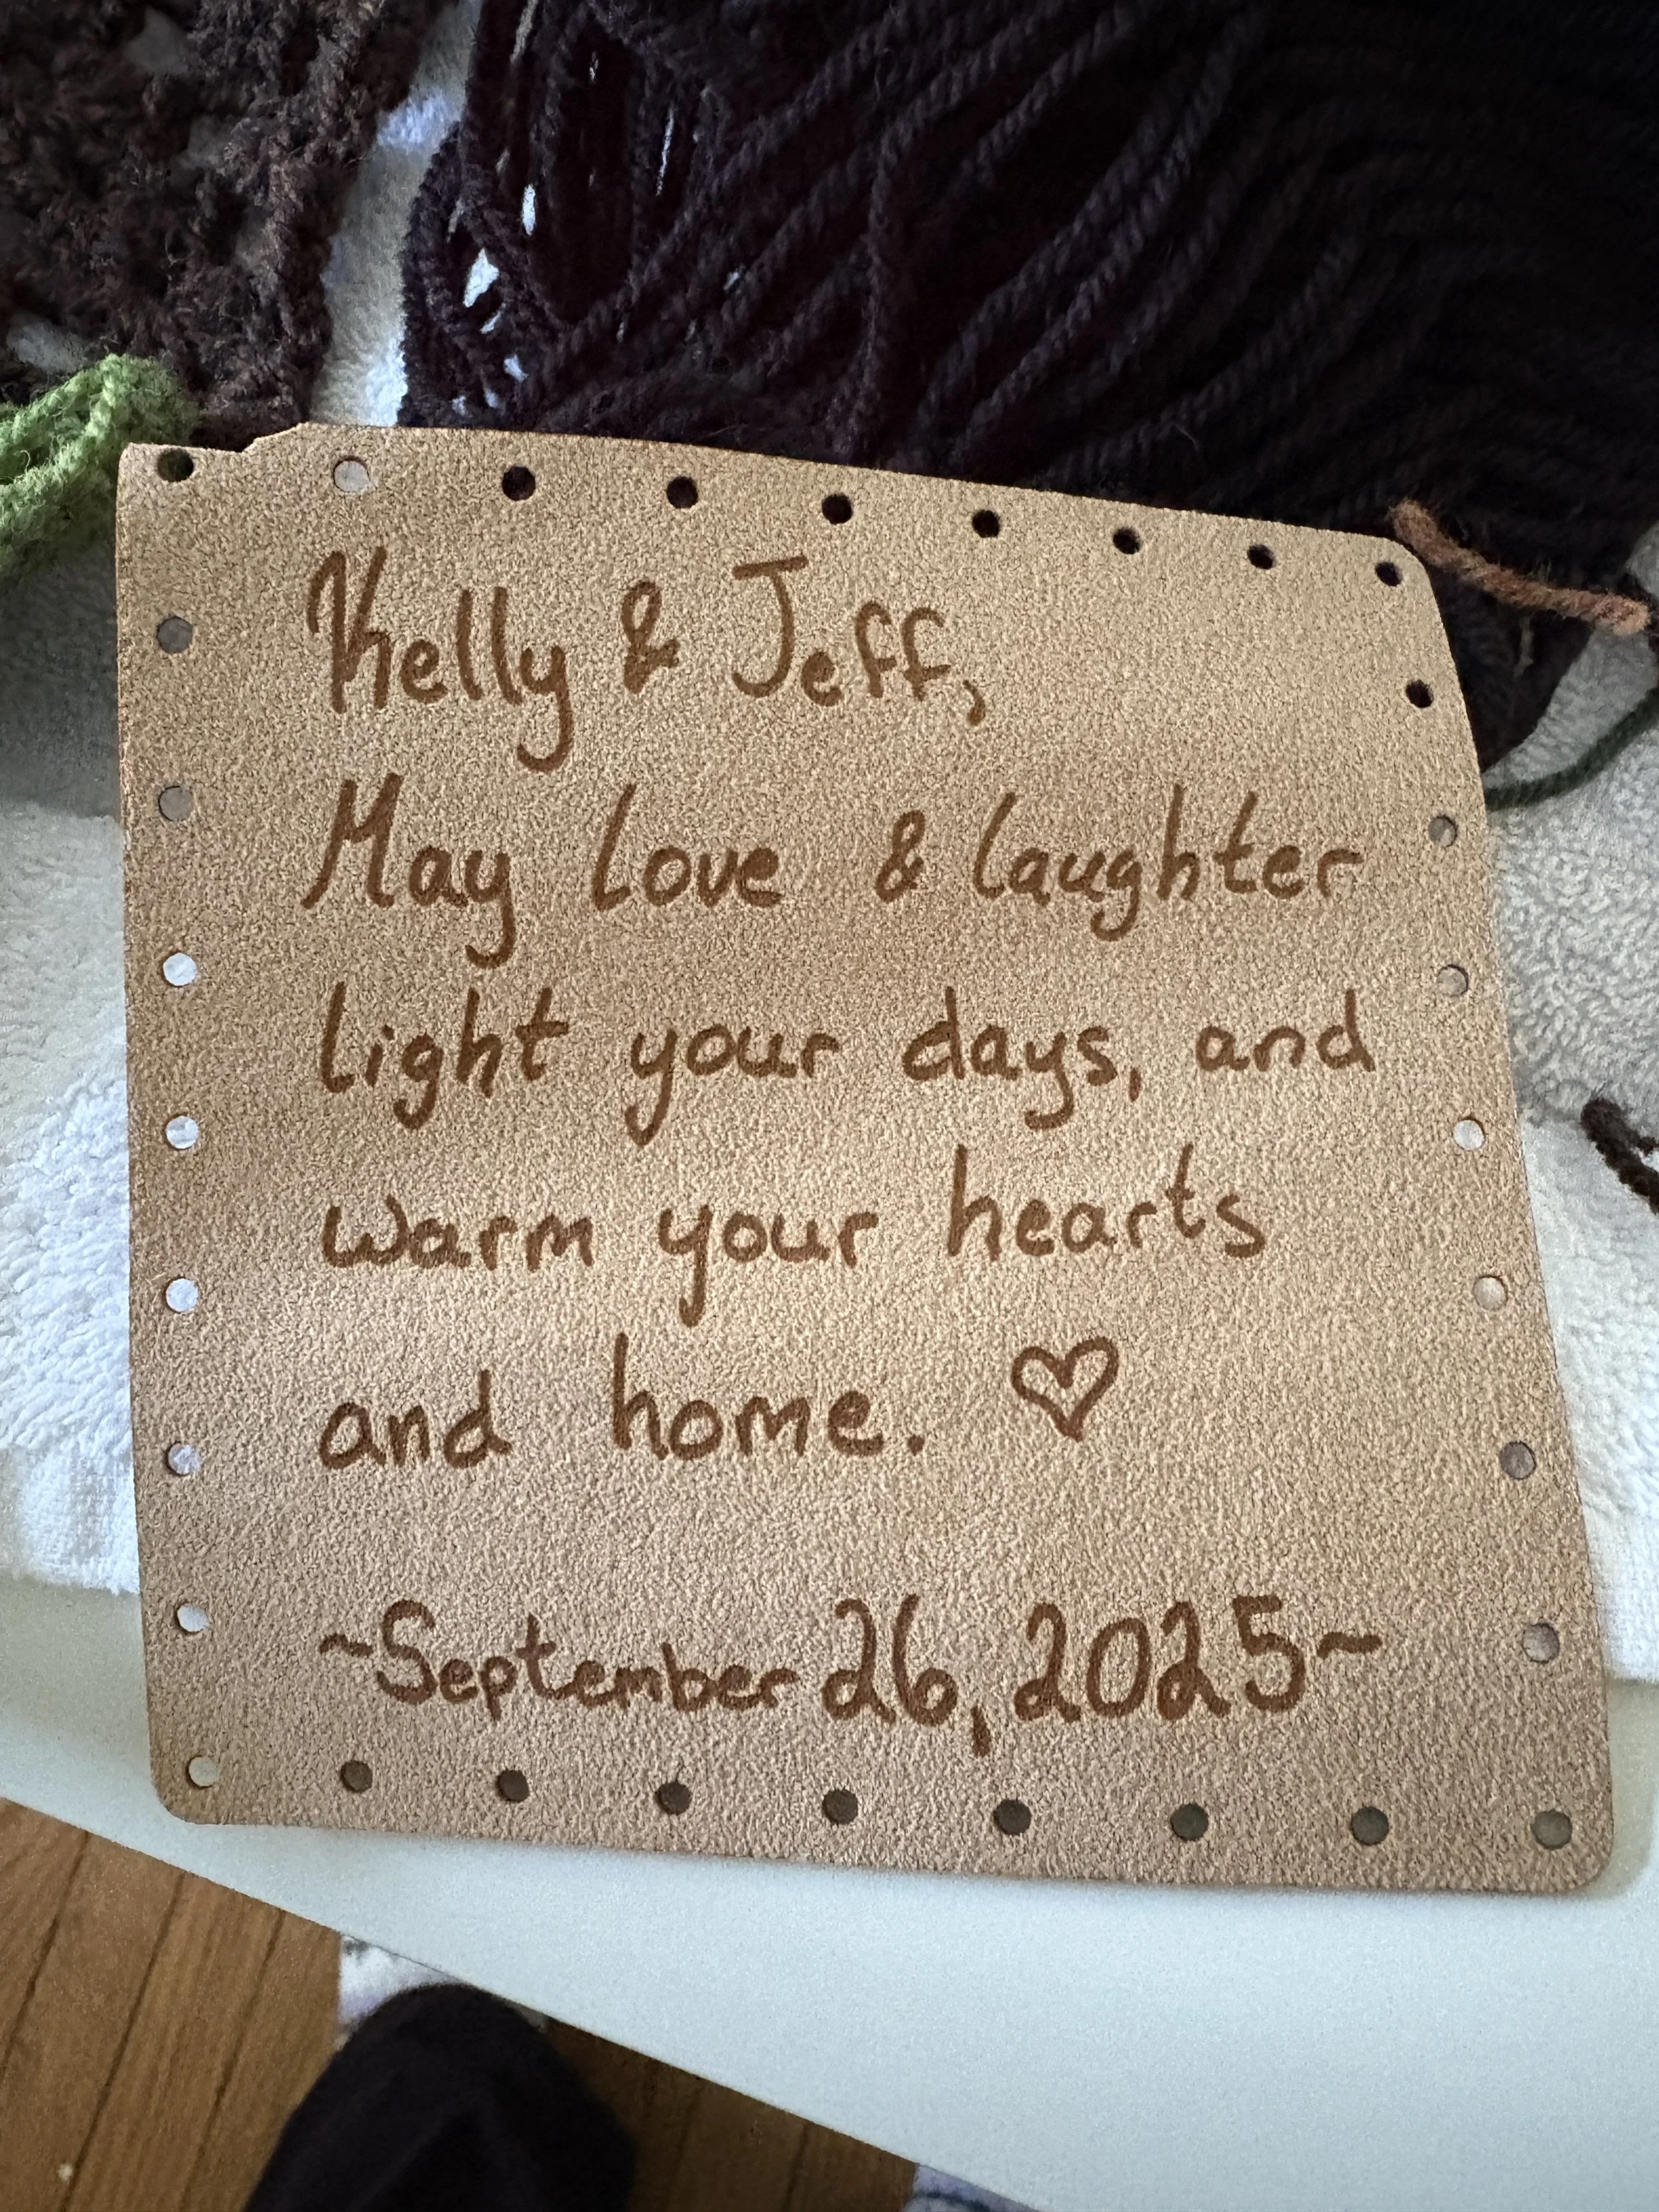 Kelly & Jeff,
May love & laughter
light your days, and
warm your hearts
and home. ♡
~September 26, 2025~